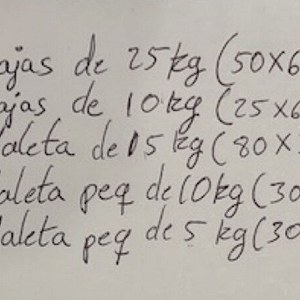 ajas de 25 kg (50x6
ajas de 10 kg (25x6
aleta de 15 kg (80x
aleta peq de 10kg (30
aleta peq de 5 kg (30